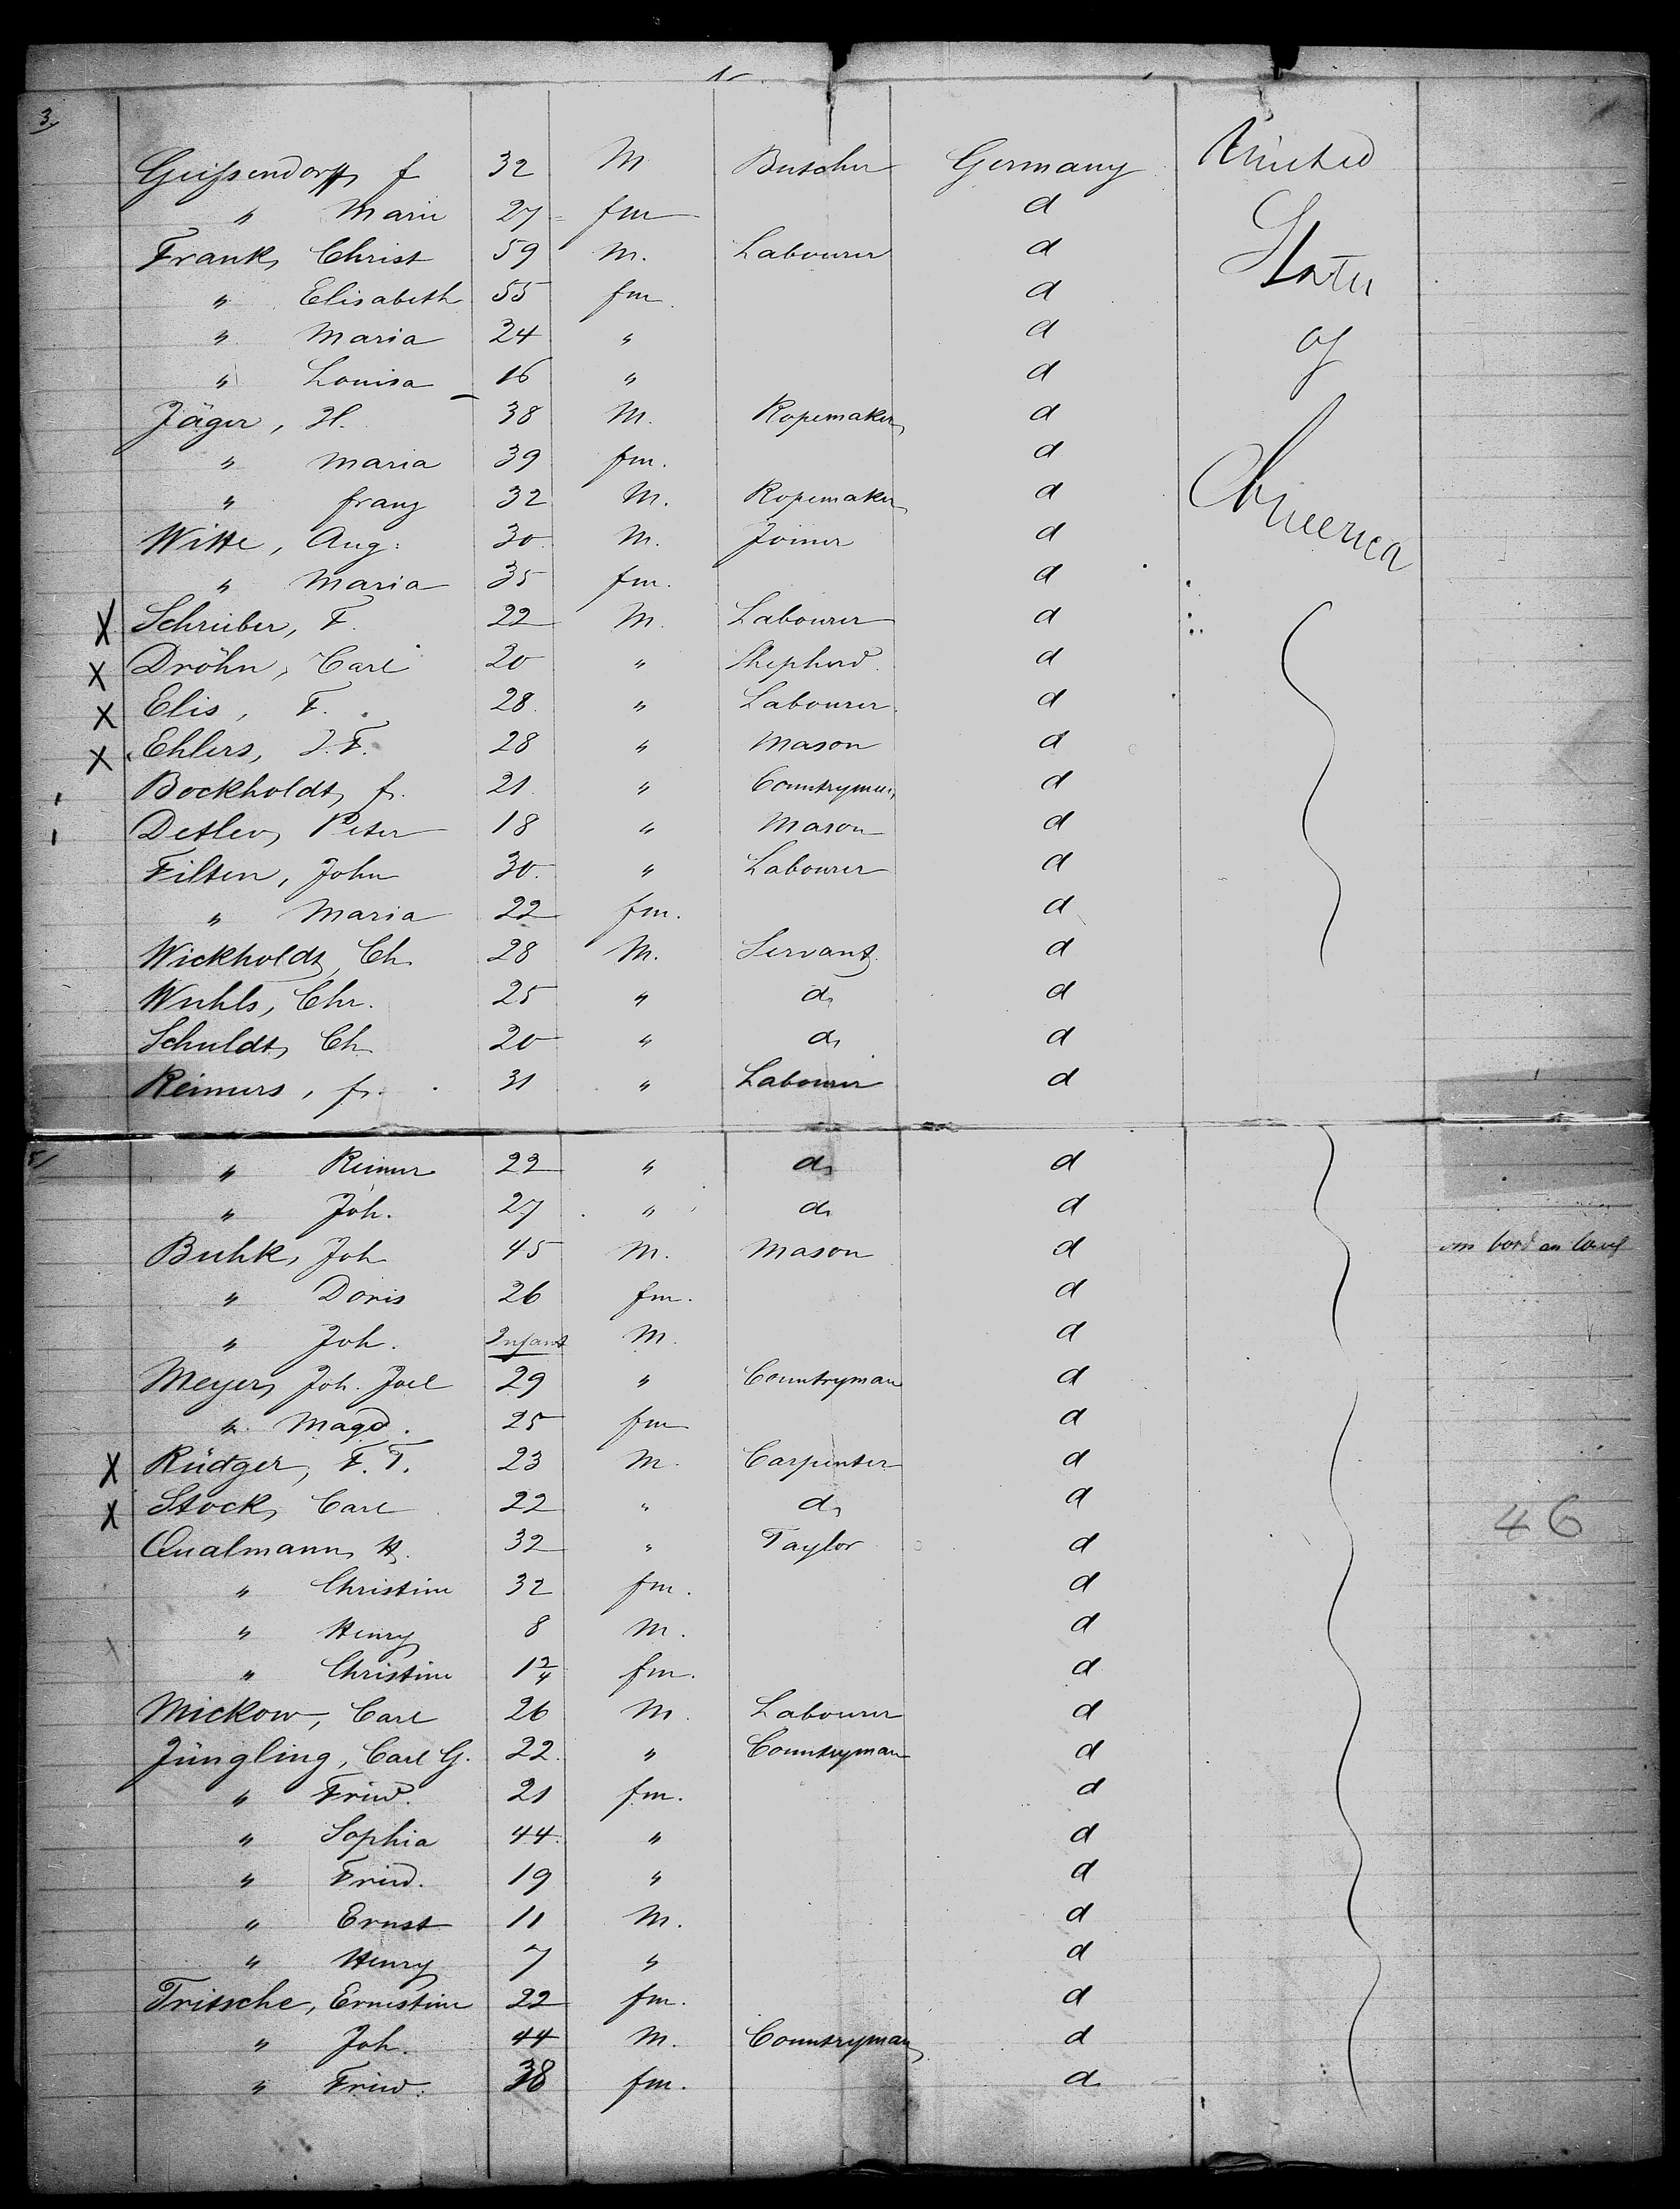 3,
Geißendorff, f 32 M Butcher Germany United
" Marie 27 fm d States
Frank, Christ 59 M. Labourer d
" Elisabeth 55 fm. d
" Maria 24 " d of
" Louisa 16 " d
Jäger, H. 38 M. Ropemaker d
" Maria 39 fm. d America
" franz 32 M. Ropemaker d
Witte, Aug: 30 M. Joiner d
" Maria 35 fm. d
X Schreiber, F. 22 M. Labourer d
X Dröhn, Carl 20 " Shepherd d
X Elis, F. 28 " Labourer d
X Ehlers, J. F. 28 " Mason d
Bockholdt, fr. 21 " Countryman d
Detlev, Peter 18 " Mason d
Filten, John 30 " Labourer d
" Maria 22 fm. d
Wickholdt, Ch. 28 M. Servant d
Wuhls, Chr. 25 " d, d
Schuldt, Ch. 20 " d, d
Reimers, fr. 31 " Labourer d
" Reimer 22 " d, d
" Joh. 27 " d, d
Buhk, Joh 45 M. Mason d
" Doris 26 fm. d
" Joh. Infant M. d
Meyer, Joh. Joel 29 " Countryman d
" Magd. 25 fm d
X Rüdger, F. T. 23 M. Carpenter d
X Stock, Carl 22 " d, d
46
Qualmann, H. 32 " Taylor d
" Christine 32 fm. d
" Henry 8 M. d
" Christine 1 2/4 fm. d
Mickow, Carl 26 M. Labourer d
Jüngling, Carl G. 22 " Countryman d
" Fried. 21 fm. d
" Sophia 44 " d
" Fried. 19 " d
" Ernst 11 M. d
" Henry 7 " d
Fritsche, Ernestine 22 fm. d
" Joh. 44 M. Countryman d
" Fried. 38 fm. d